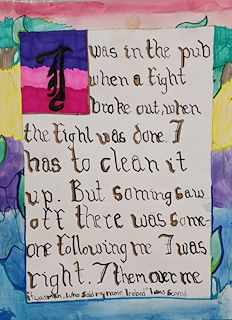 I was in the pub
when a fight
broke out, when
the fighl was done. I
has to clean it
up. But soming saw
off there was some-
one following me I was
right I them over me
who said my name I was scared